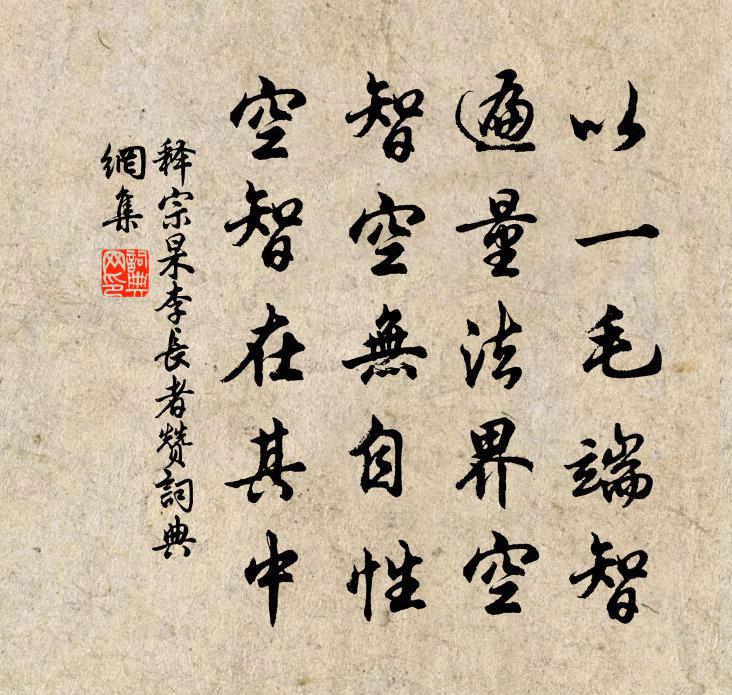 以一毛端智
遍量法界空
智空無自性
空智在其中
释宗杲李長者赞詞典
網集
詞典
网印